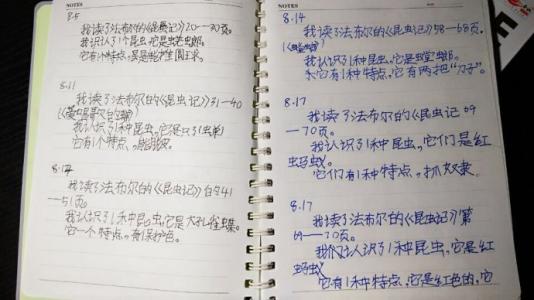 NOTES
8.5
我读了法布尔的《昆虫记》20—30页。
我识认了1个昆虫,它是
它有1个特点,是
8.11
我读了法布尔的《昆虫记》31—40
我认识了1种昆虫,它是
它有1个特点,
我读了法布尔的《昆虫记》41
—51页。
我认识了1种昆虫,它是大孔雀蝶。
它一个特点,有保护色。
NOTES
8.14
我读了法布尔的《昆虫记》58—68页。
我认识了1种昆虫,它是螳螂。
它有1种特点,它有两把“刀子”。
8.17
我读了法布尔的《昆虫记 09
—70页。
我认识了1种昆虫,它们是红
蚂蚁。
它们有1种特点,抓奴隶。
8.17
我读了法布尔的《昆虫记》第
69—70页。
我们认识了1种昆虫,它是红
蚂蚁
它有1种特点,它是红色的,它